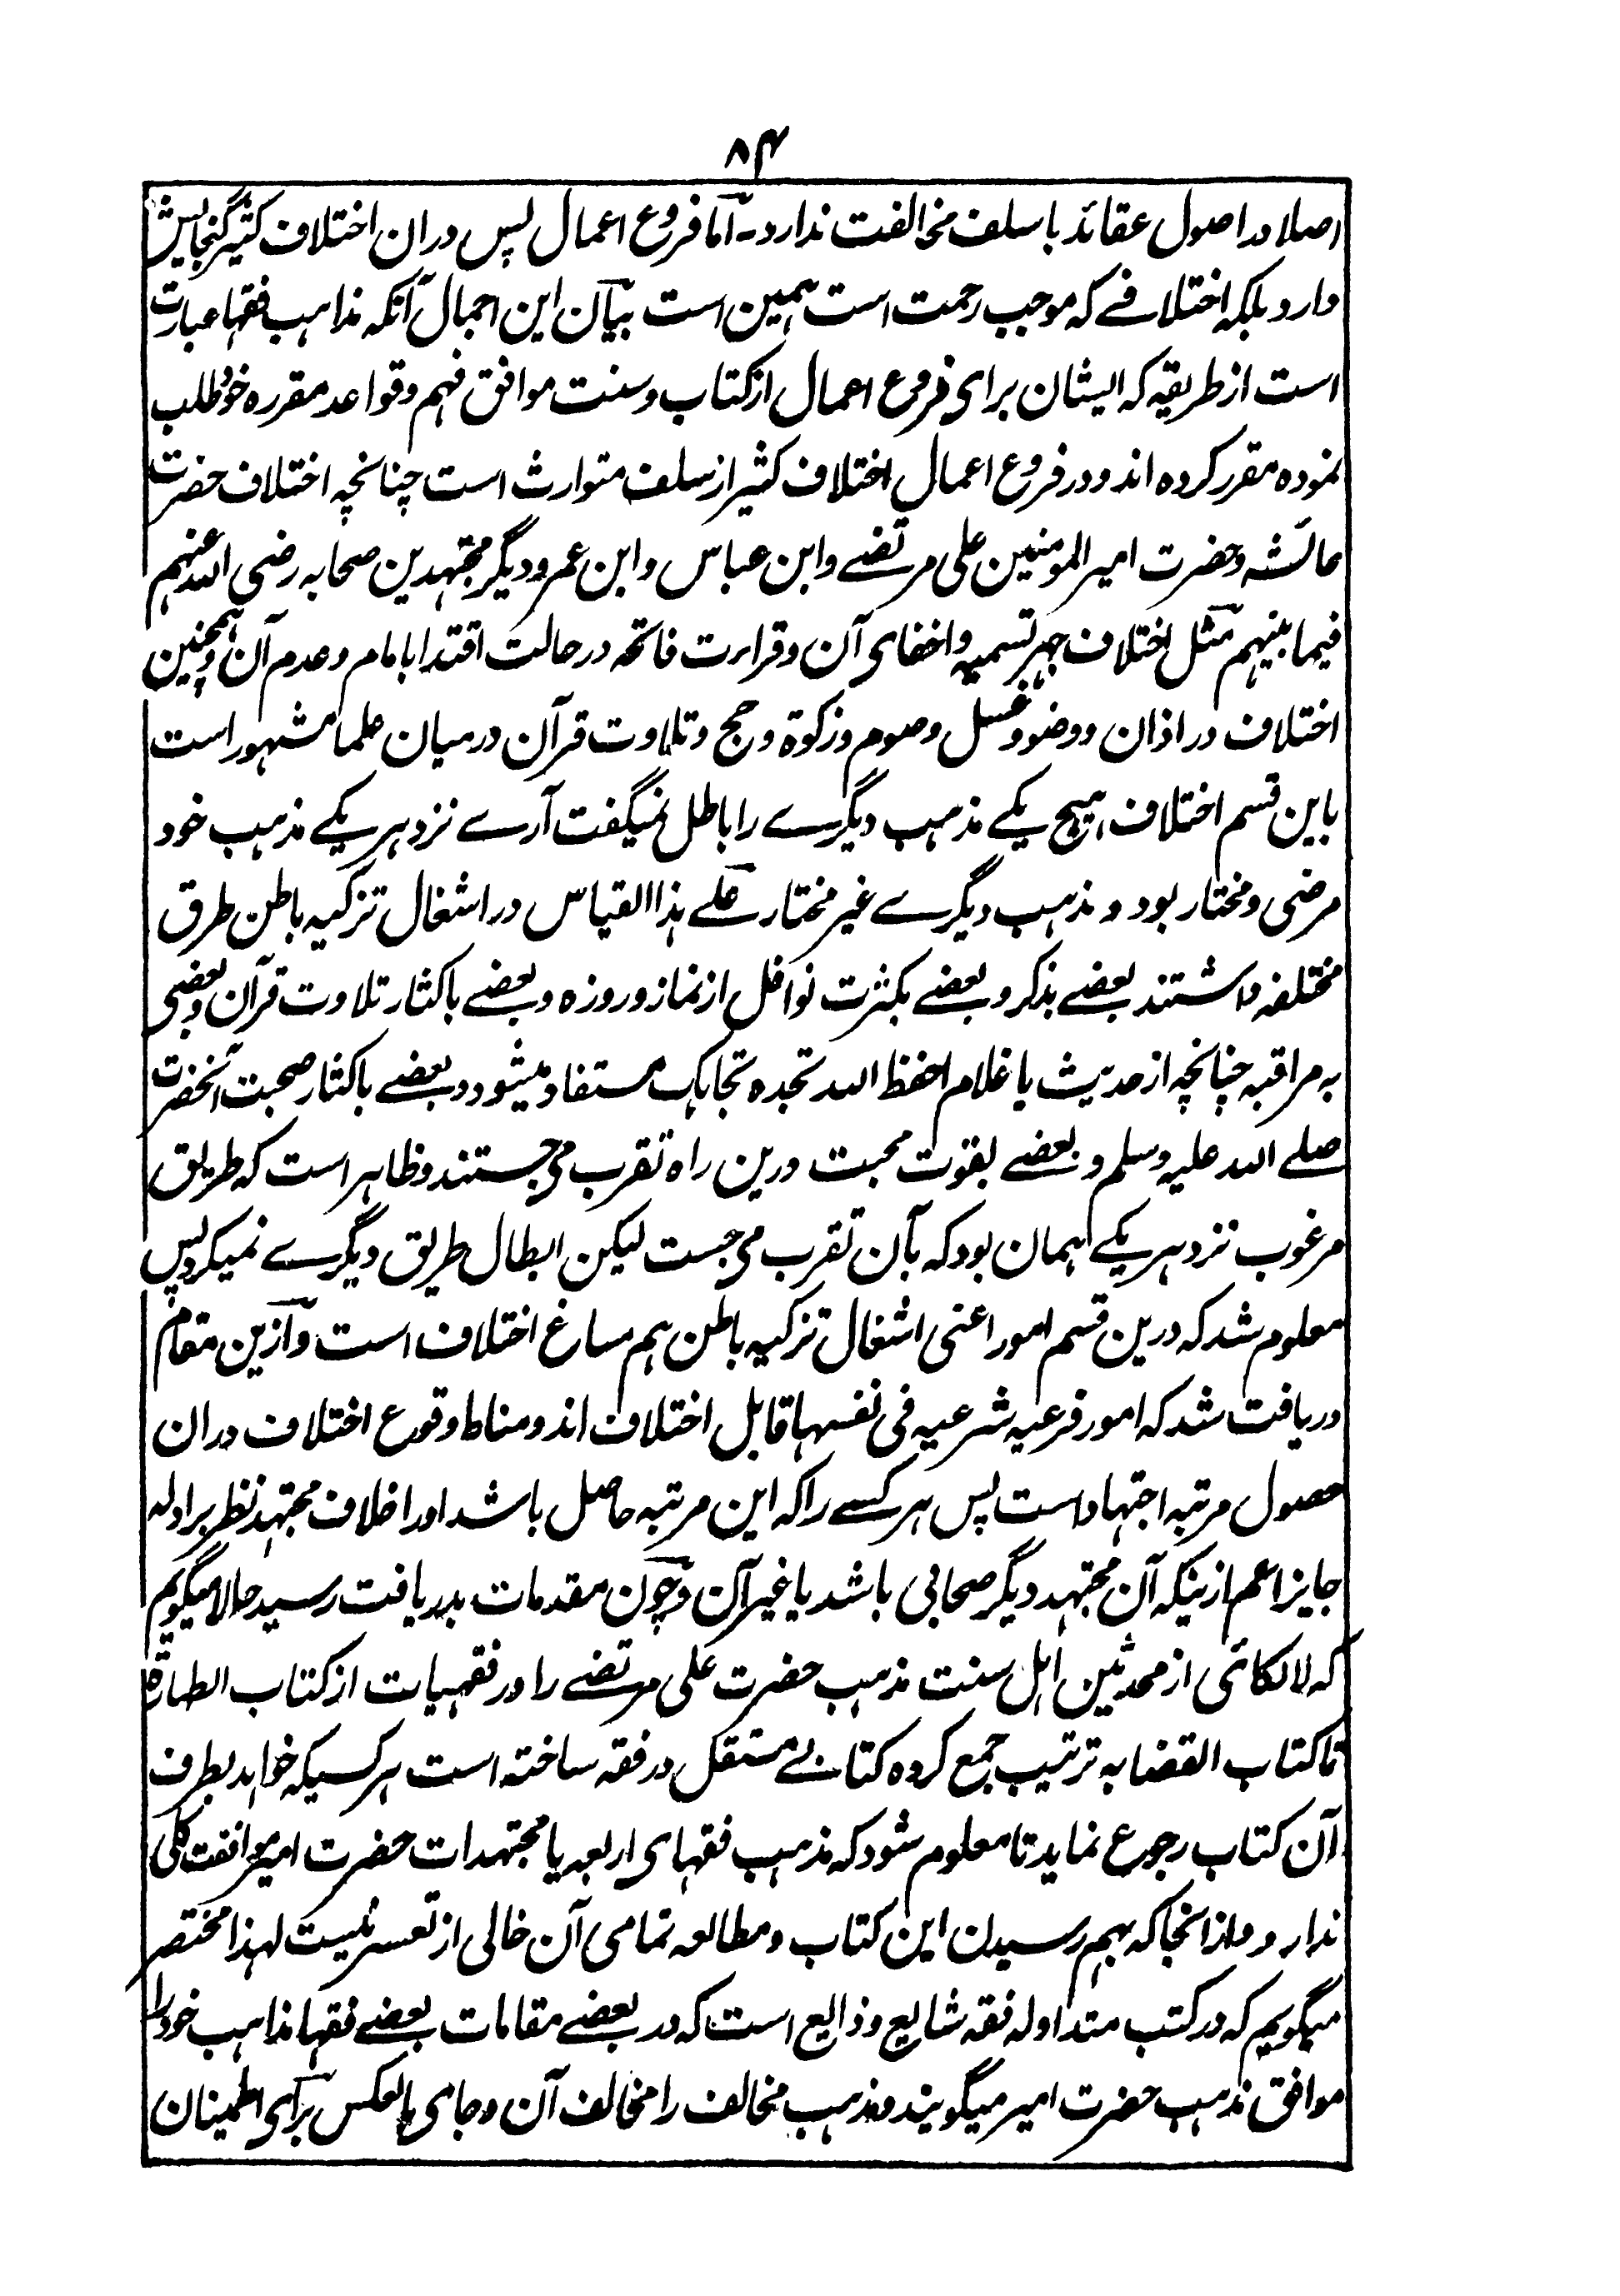 ۸۴
اصلا در اصول عقائد با سلف مخالفت ندارد۔ اما فروع اعمال پس دران اختلاف کثیر گنجایش
دارد بلکه اختلافے که موجب رحمت است همین است بیان این اجمال آنکه مذاهب فقها عبارت
است از طریقیه که ایشان برای فروع اعمال از کتاب و سنت موافق فهم و قواعد مقرره خود طلب
نموده مقرر کرده اند و در فروع اعمال اختلاف کثیر از سلف متوارث است چنانچه اختلاف حضرت
عائشه و حضرت امیر المومنین علی مرتضے و ابن عباس و ابن عمر و دیگر مجتهدین صحابه رضی الله عنهم
فیما بینهم مثل اختلاف جهر تسمیه و اخفای آن و قراءت فاتحه در حالت اقتدا بامام و عدم آن و همچنین
اختلاف در اذان و وضو و غسل و صوم و زکوة و حج و تلاوت قرآن درمیان علما مشهور است
باین قسم اختلاف هیچ یکے مذهب دیگرے را باطل نمیگفت آرے نزد هر یکے مذهب خود
مرضی و مختار بود و مذهب دیگرے غیر مختار علے هذا القیاس در اشغال تزکیه باطن طرق
مختلفه داشتند بعضے بذکر و بعضے بکثرت نوافل از نماز و روزه و بعضے باکثار تلاوت قرآن و بعضی
به مراقبه چنانچه از حدیث یا غلام احفظ الله تجده تجاهک مستفاد میشود و بعضے باکثار صحبت آنحضرت
صلے الله علیه وسلم و بعضے بقوت محبت درین راه تقرب می جستند و ظاهر است که طریق
مرغوب نزد هر یکے همان بود که بآن تقرب می جست لیکن ابطال طریق دیگرے نمیکرد پس
معلوم شد که درین قسم امور اعنی اشغال تزکیه باطن هم مساغ اختلاف است و ازین مقام
دریافت شد که امور فرعیه شرعیه فی نفسها قابل اختلاف اند و مناط وقوع اختلاف دران
حصول مرتبه اجتهاد است پس هر کسے را که این مرتبه حاصل باشد او را خلاف مجتهد نظر بر ادله
جایز اعم ازینکه آن مجتهد دیگر صحابی باشد یا غیر آن و چون مقدمات بدریافت رسید حالا میگویم
که لالکائی از محدثین اهل سنت مذهب حضرت علی مرتضے را در فقهیات از کتاب الطهارة
تا کتاب القضا به ترتیب جمع کرده کتابے مستقل در فقه ساخته است هر کسیکه خواهد بطرف
آن کتاب رجوع نماید تا معلوم شود که مذهب فقهای اربعه با مجتهدات حضرت امیر موافقت کلی
ندارد و از انجا که بهم رسیدن این کتاب و مطالعه تمامی آن خالی از تعسر نیست لهذا مختصر
میگویم که در کتب متداوله فقه شایع و ذایع است که در بعضے مقامات بعضے فقها مذاهب خود را
موافق مذهب حضرت امیر میگویند و مذهب مخالف را مخالف آن و جای بالعکس برای اطمینان